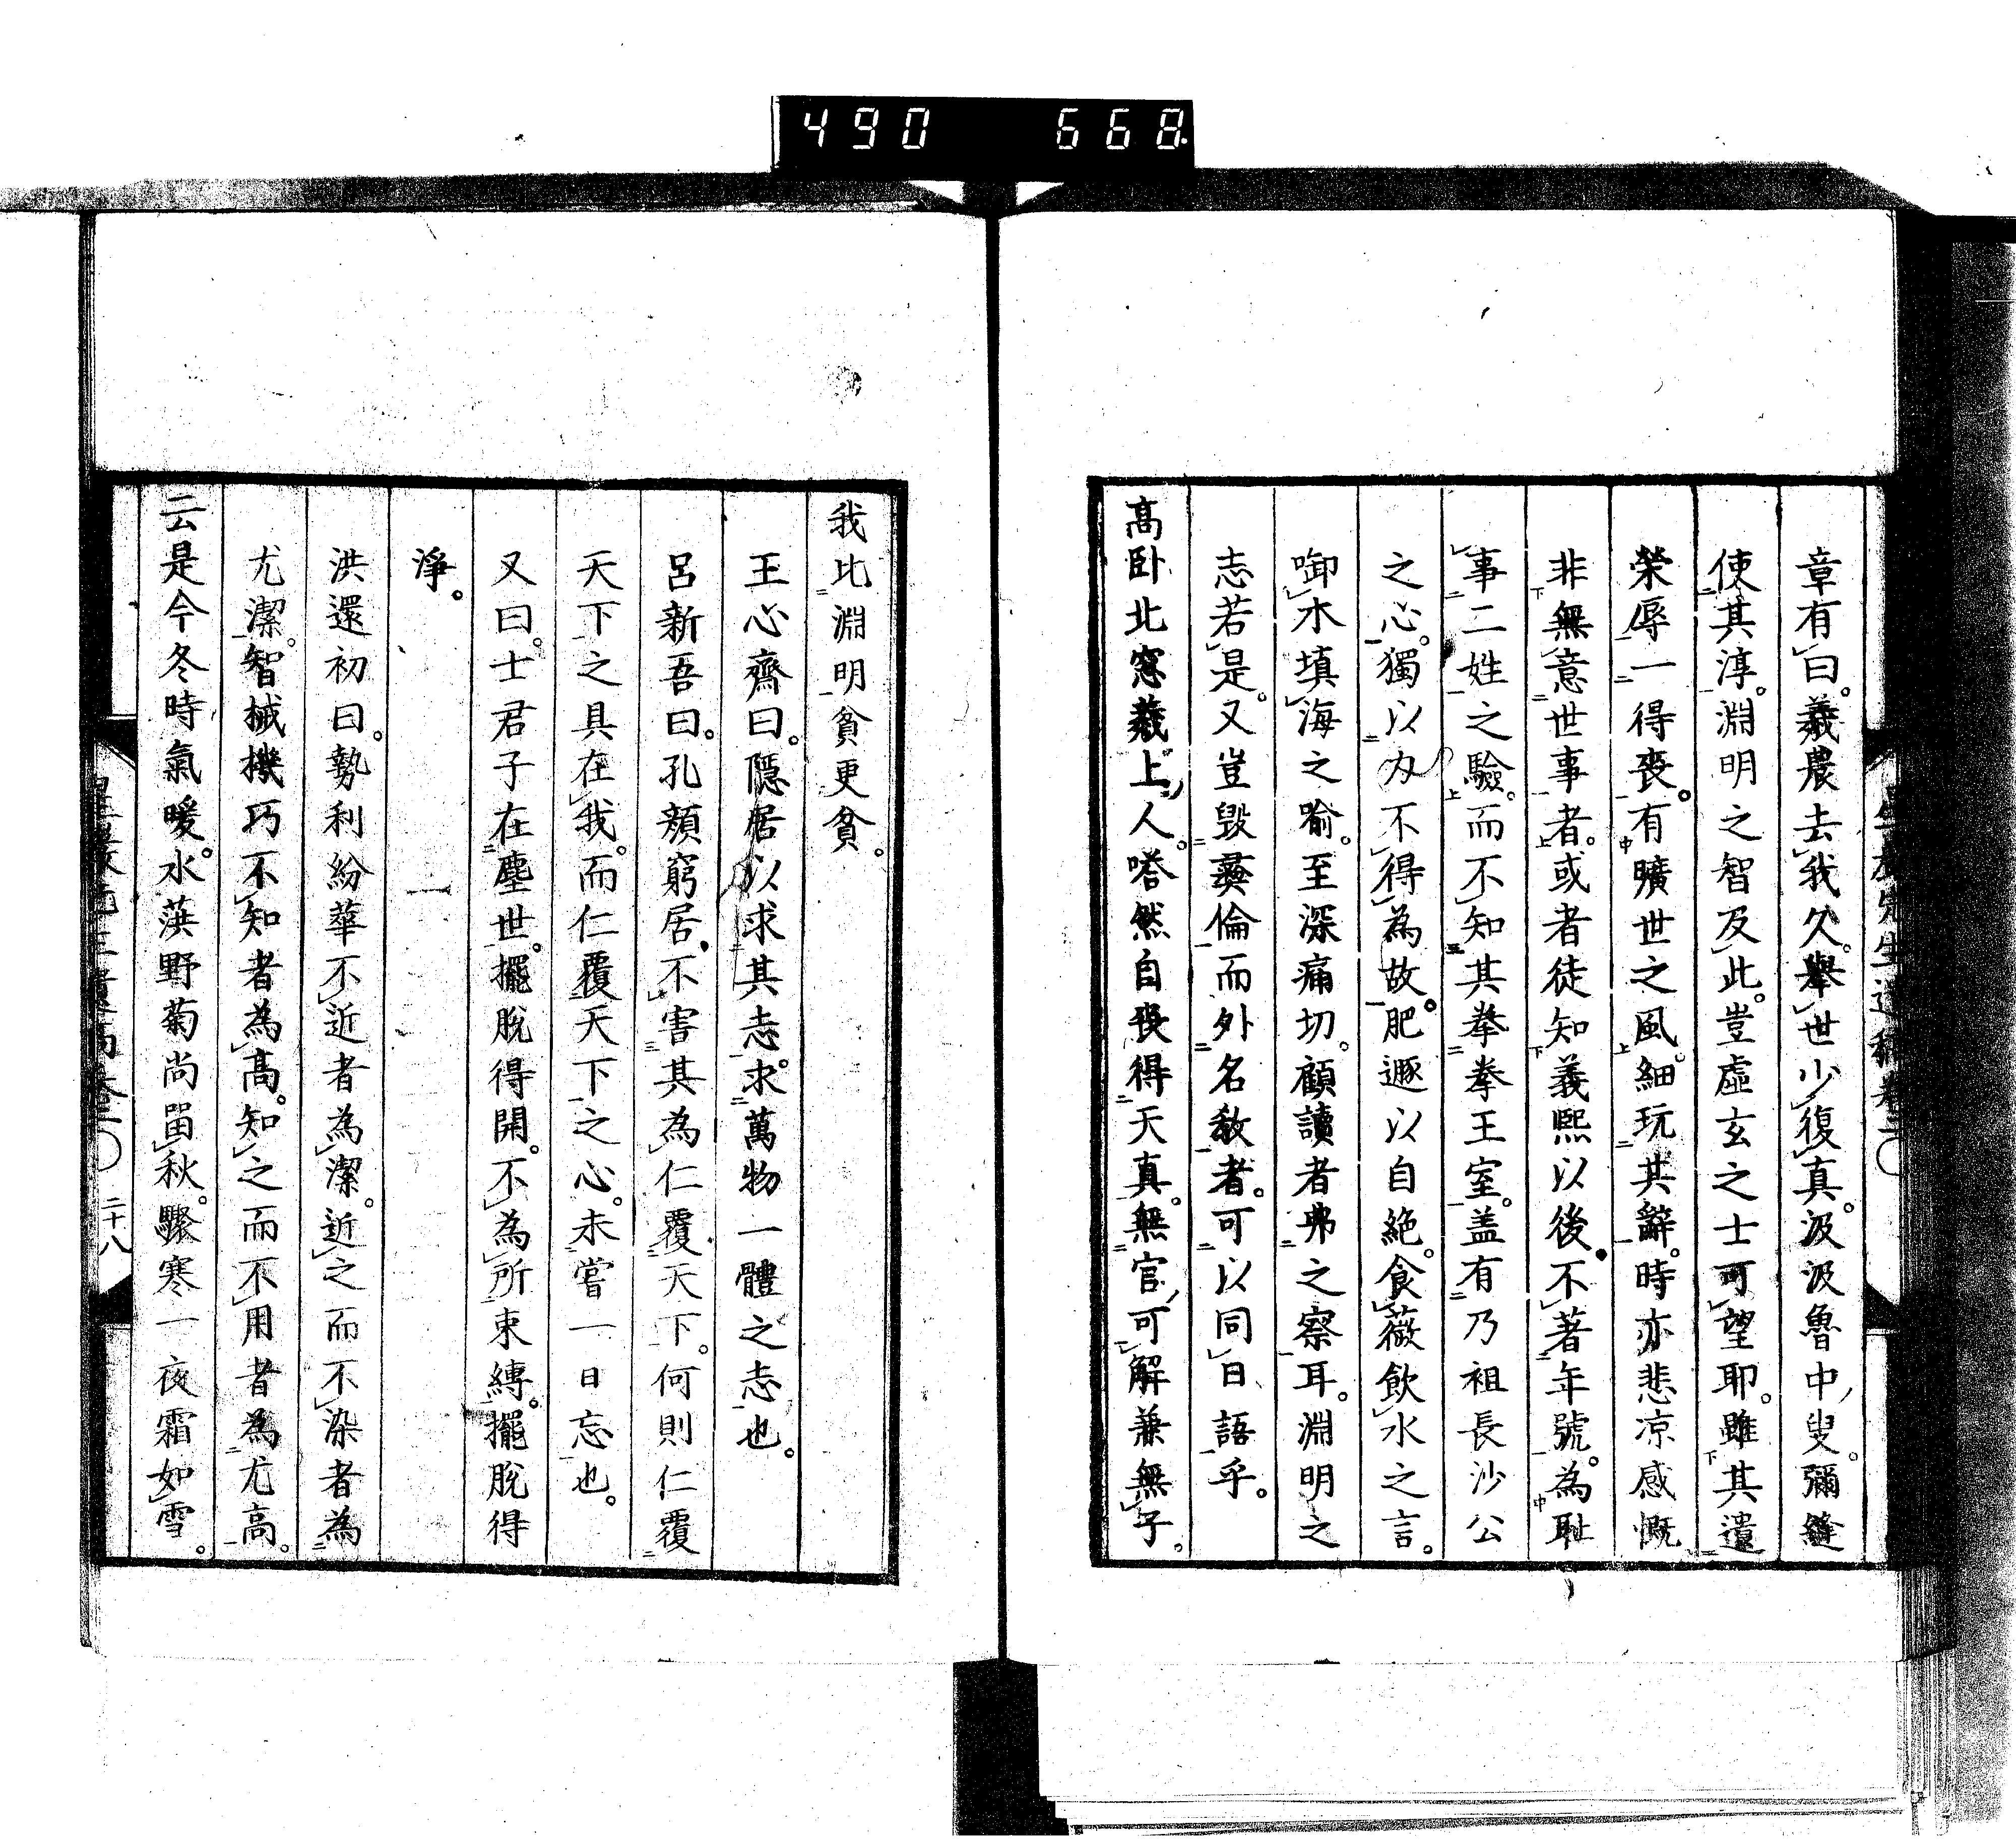 490 668
章有曰。羲農去我久。舉世少復真。汲汲魯中叟。彌縫
使其淳。淵明之智及此。豈虛玄之士可望耶。雖其遺
榮辱一得喪。有曠世之風。細玩其辭。時亦悲凉感慨
非無意世事者。或者徒知義熙以後。不著年號。為耻
事二姓之驗。而不知其拳拳王室。盖有乃祖長沙公
之心。獨以力不得為故。肥遯以自絶。食薇飲水之言。
啣木填海之喻。至深痛切。顧讀者弗之察耳。淵明之
志若是。又豈毀彝倫而外名教者。可以同日語乎。
高卧北窓羲上人。嗒然自喪得天真。無官可解兼無子。
我比淵明貧更貧。
王心齋曰。隱居以求其志。求萬物一體之志也。
呂新吾曰。孔顏窮居。不害其為仁覆天下。何則仁覆
天下之具在我。而仁覆天下之心。未嘗一日忘也。
又曰。士君子在塵世。擺脫得開。不為所束縛。擺脫得
淨。
洪還初曰。勢利紛華不近者為潔。近之而不染者為
尤潔。智械機巧不知者為高。知之而不用者為尤高。
云是今冬時氣暖。水葓野菊尚畱秋。驟寒一夜霜如雪。
二十八